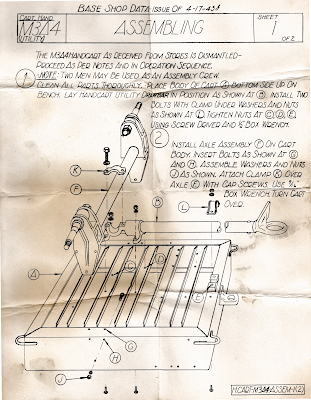 BASE SHOP DATA-ISSUE OF 4-17-43
CART, HAND
M3A4
UTILITY
ASSEMBLING
SHEET
1
OF 2
THE M3A4 HANDCART AS RECEIVED FROM STORES IS DISMANTLED-
PROCEED AS PER NOTES AND IN OPERATION SEQUENCE.
NOTE: TWO MEN MAY BE USED AS AN ASSEMBLY CREW.
1
CLEAN ALL PARTS THOROUGHLY. PLACE BODY OF CART A BOTTOM SIDE UP ON
BENCH. LAY HANDCART UTILITY DRAWBAR IN POSITION AS SHOWN AT B. INSTALL TWO
BOLTS WITH CLAMP UNDER WASHERS AND NUTS
AS SHOWN AT L. TIGHTEN NUTS AT C, D, E,
USING SCREW DRIVER AND BOX WRENCH.
2
INSTALL AXLE ASSEMBLY F ON CART
BODY. INSERT BOLTS AS SHOWN AT G
AND H. ASSEMBLE WASHERS AND NUTS
J AS SHOWN. ATTACH CLAMP K OVER
AXLE F WITH CAP SCREWS. USE
BOX WRENCH. TURN CART
OVER.
K
F
B
L
A
E
D
C
G
H
J
H.CART-M3A4-ASSEM-1(2)